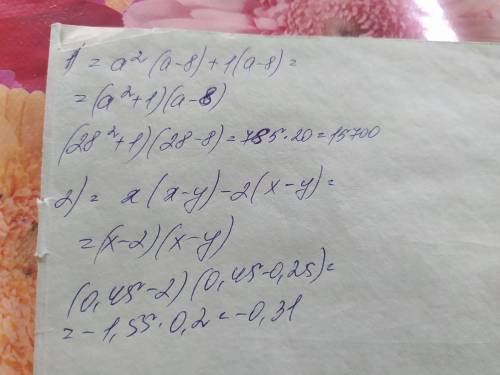 1) = a² (a-8) + 1(a-8) =
= (a² + 1)(a-8)
(28² + 1)(28-8) = 785 · 20 = 15700
2) = x (x-y) - 2(x-y) =
= (x-2)(x-y)
(0,45-2)(0,45-0,25) =
= -1,55 · 0,2 = -0,31